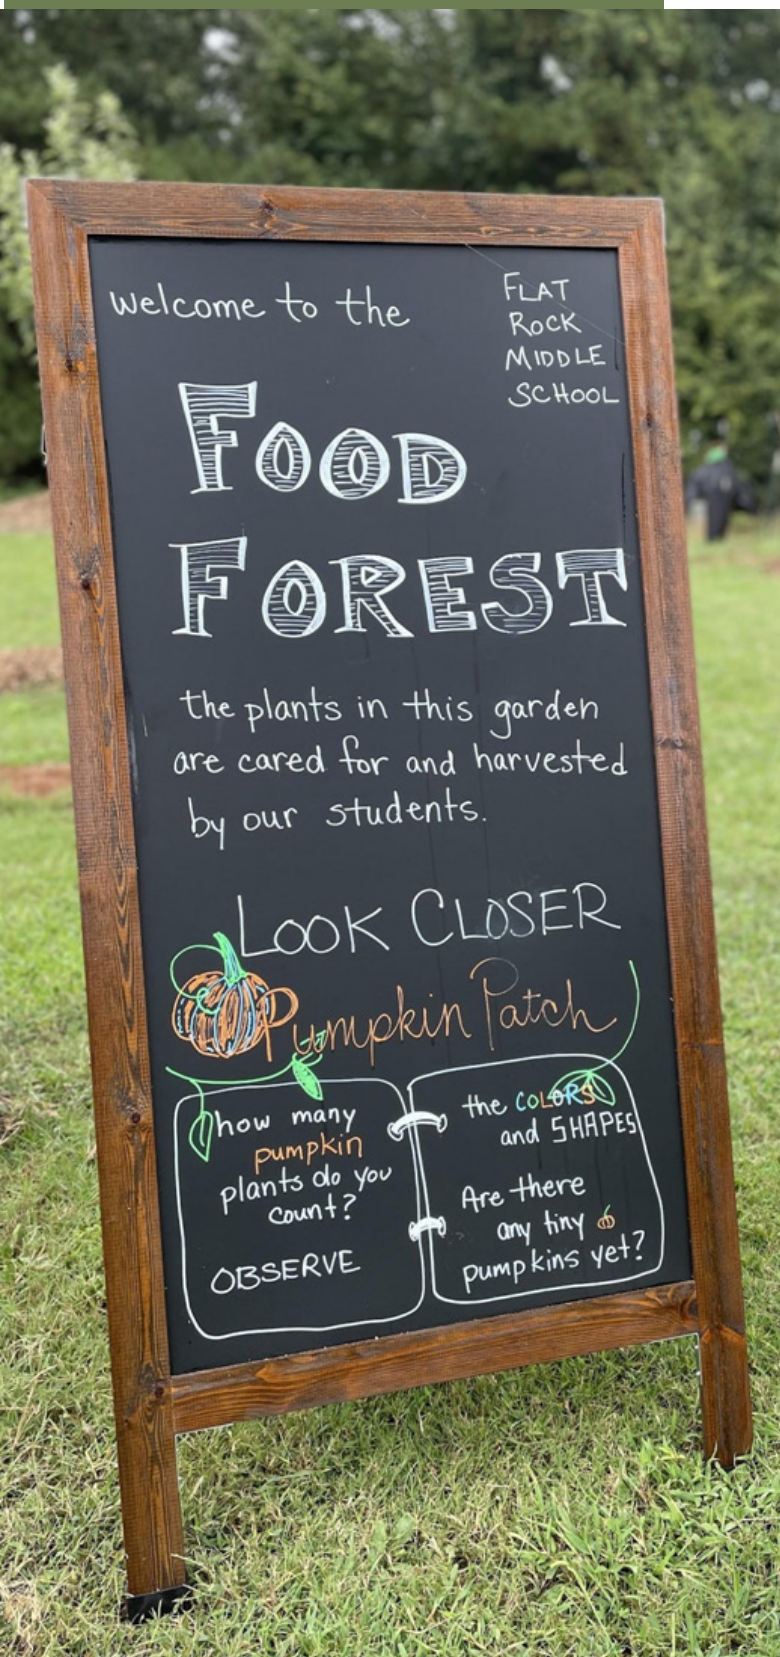 welcome to the
FLAT
ROCK
MIDDLE
SCHOOL
FOOD
FOREST
the plants in this garden
are cared for and harvested
by our students.
LOOK CLOSER
Pumpkin Patch
how many
pumpkin
plants do you
count?
OBSERVE
the COLORS
and SHAPES
Are there
any tiny
pumpkins yet?